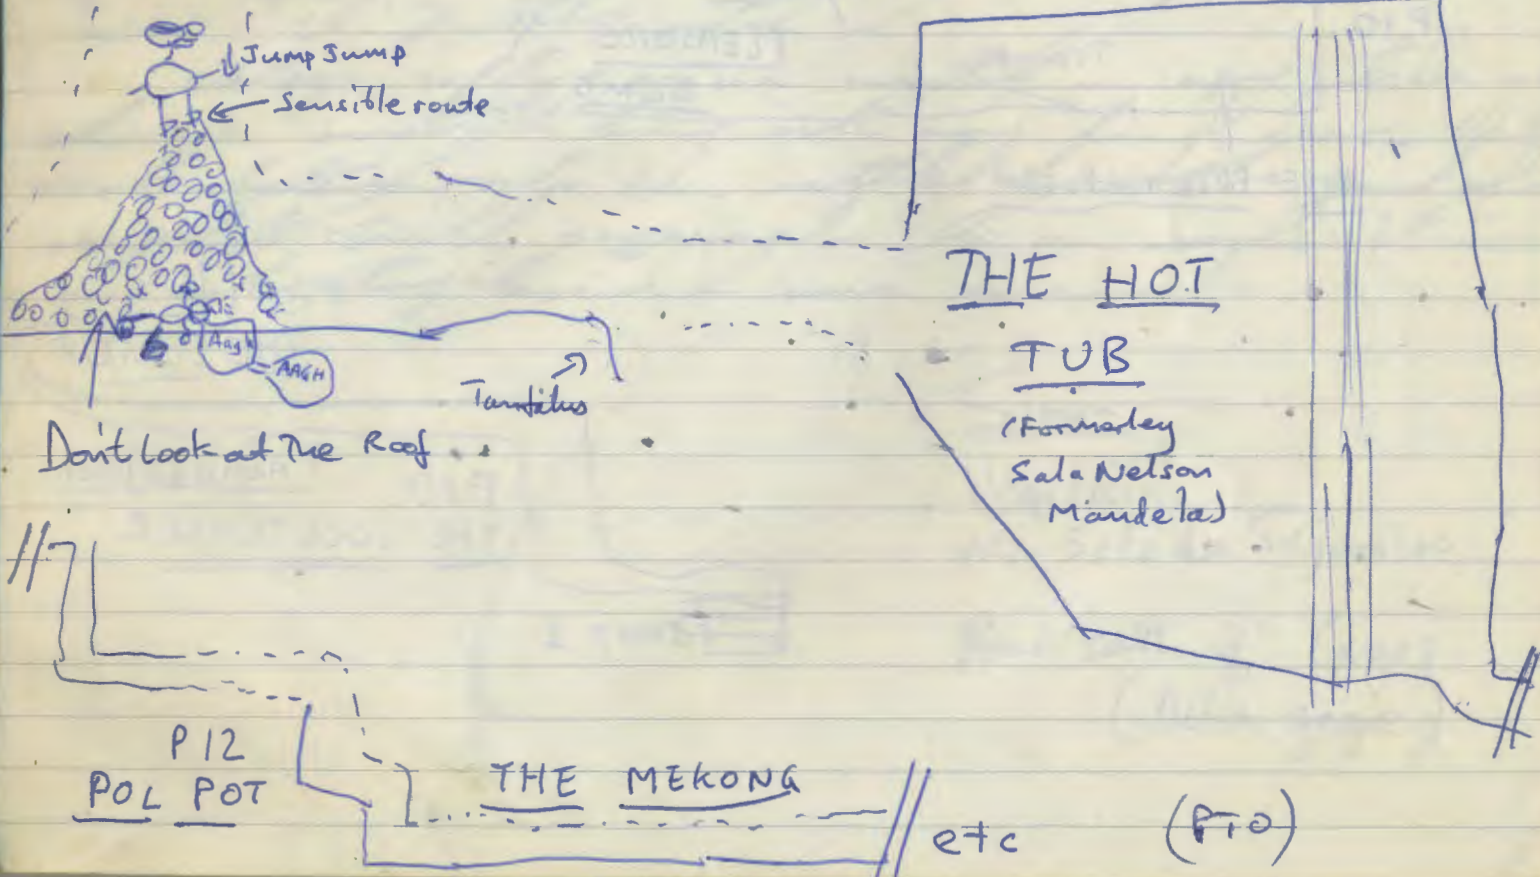 Jump Jump
Sensible route
Aagh
AAGH
Tantalus
Don't look at The Roof
THE HOT
TUB
(Formerley
Sala Nelson
Mandela)
P12
POL POT
THE MEKONG
etc
(PTO)